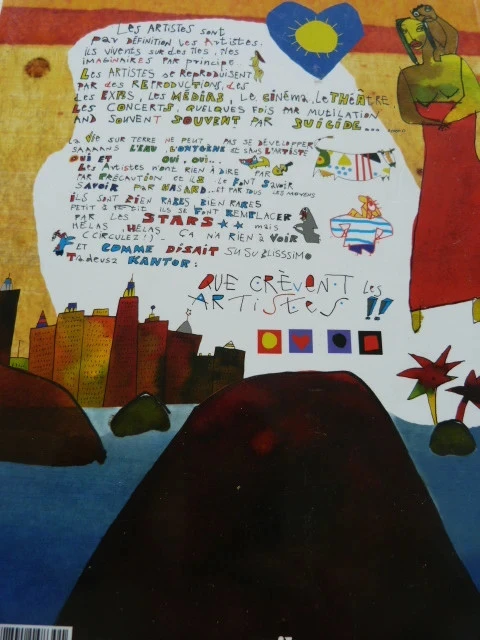 LES ARTISTES SONT
par DÉFINITION LES ARTISTES.
ILS VIVENTS SUR DES ÎLES, ILES
IMAGINAIRES PAR PRINCIPE.
LES ARTISTES se REPRODUISENT
PAR des REPRODUCTIONS, des
des EXPOS, LES MÉDIAS, LE CINÉMA, LE THÉÂTRE
LES CONCERTS, QUELQUES FOIS PAR MUTILATION
AND SOUVENT SOUVENT PAR SUICIDE...
LA VIE SUR TERRE NE PEUT PAS SE DÉVELOPPER
SAAAANS L'EAU, L'OXYGÈNE ET SANS L'ARTISTE
OUI ET OUI, OUI...
LES ARTISTES N'ONT RIEN À DIRE PAR
PAR PRÉCAUTION ET ILS LE FONT SAVOIR
SAVOIR PAR HASARD... ET PAR TOUS LES MOYENS
ILS SONT BIEN RARES, BIEN RARES
PETIT À PETIT ILS SE FONT REMPLACER
PAR LES STARS MAIS
HÉLAS, HÉLAS ÇA NA RIEN à VOIR
(CIRCULEZ!)
ET COMME DISAIT SUSUBLISSSIMO
Tadeusz KANTOR:
QUE CRÈVENT les
ARTISTES !!